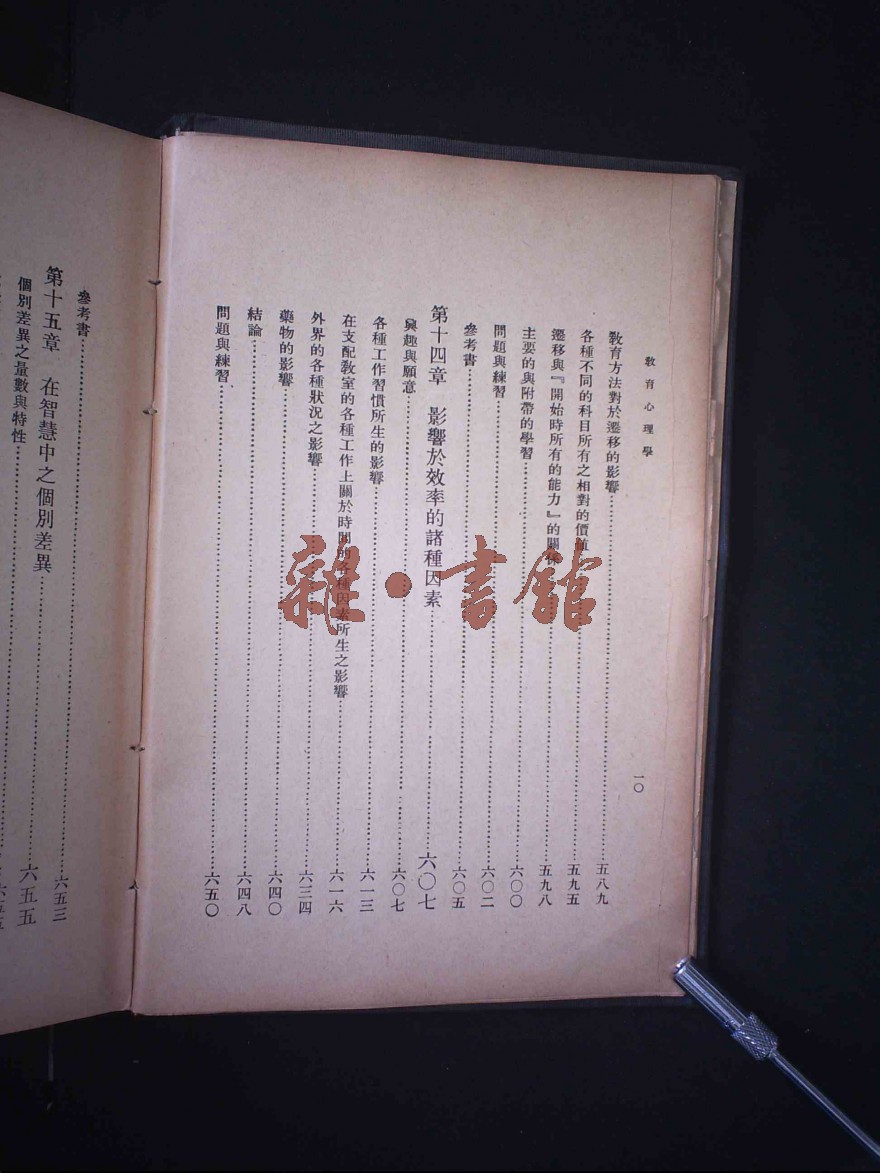 教育心理學
一〇
教育方法對於遷移的影響……五八九
各種不同的科目所有之相對的價值……五九五
遷移與『開始時所有的能力』的關係……五九八
主要的與附帶的學習……六〇〇
問題與練習……六〇二
參考書……六〇五
第十四章　影響於效率的諸種因素……六〇七
興趣與願意……六〇七
各種工作習慣所生的影響……六一三
在支配教室的各種工作上關於時間的各種因素所生之影響……六一六
外界的各種狀況之影響……六三四
藥物的影響……六四〇
結論……六四八
問題與練習……六五〇
參考書……六五三
第十五章　在智慧中之個別差異……六五五
個別差異之量數與特性……六五五
雜·書館